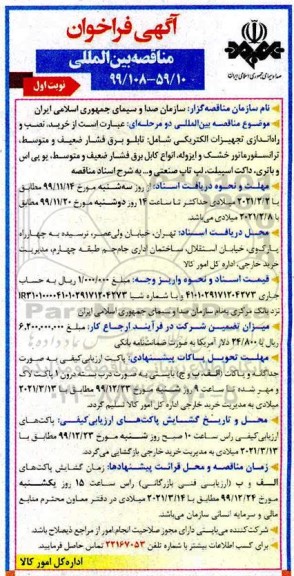 آگهی فراخوان
مناقصه بین‌المللی
۹۹/۱۰۸-۵۹/۱۰
نوبت اول
صدا و سیمای جمهوری اسلامی ایران
نام سازمان مناقصه‌گزار: سازمان صدا و سیمای جمهوری اسلامی ایران
موضوع مناقصه بین‌المللی دو مرحله‌ای: عبارت است از خرید، نصب و
راه‌اندازی تجهیزات الکتریکی شامل: تابلو برق فشار ضعیف و متوسط،
ترانسفورماتور خشک و ایزوله، انواع کابل برق فشار ضعیف و متوسط، یو پی اس
و باتری، داکت اسپیلت، لپ تاپ صنعتی و... به شرح اسناد مناقصه
مهلت و نحوه دریافت اسناد: از روز سه‌شنبه مورخ ۹۹/۱۱/۱۴ مطابق با
۲۰۲۱/۲/۲ میلادی حداکثر تا ساعت ۱۴ روز دوشنبه مورخ ۹۹/۱۱/۲۰ مطابق
با ۲۰۲۱/۲/۸ میلادی می‌باشد.
محل دریافت اسناد: تهران، خیابان ولی‌عصر، نرسیده به چهارراه
پارک‌وی، خیابان استقلال، ساختمان اداری جام‌جم طبقه چهارم، مدیریت
خرید خارجی، اداره کل امور کالا
قیمت اسناد و نحوه واریز وجه: مبلغ ۱/۰۰۰/۰۰۰ ریال به حساب
جاری ۴۱۰۱۰۲۹۱۷۱۲۰۴۲۷۳ و یا شماره شبا
نزد بانک مرکزی به‌نام سازمان صدا و سیمای جمهوری اسلامی ایران
میزان تضمین شرکت در فرآیند ارجاع کار: مبلغ ۶,۲۰۰,۰۰۰,۰۰۰
ریال یا ۲۴/۸۰۰ دلار آمریکا به صورت ضمانت‌نامه بانکی
مهلت تحویل پاکات پیشنهادی: پاکت ارزیابی کیفی به صورت
جداگانه و پاکات (الف، ب و ج) بایستی به صورت دربسته درون ۱ پاکت لاک
و مهر شده تا ساعت ۹ روز شنبه مورخ ۹۹/۱۲/۲۳ مطابق با ۲۰۲۱/۳/۱۳
میلادی به مدیریت خرید خارجی اداره کل امور کالا تسلیم گردد.
محل و تاریخ گشایش پاکت‌های ارزیابی‌کیفی: پاکت‌های
ارزیابی‌کیفی راس ساعت ۱۰ صبح روز شنبه مورخ ۹۹/۱۲/۲۳ مطابق با
۲۰۲۱/۳/۱۳ میلادی به مدیریت خرید خارجی بازگشایی می‌گردد.
زمان مناقصه و محل قرائت پیشنهادها: زمان گشایش پاکت‌های
الف و ب (ارزیابی فنی بازرگانی) راس ساعت ۱۵ روز یکشنبه
مورخ ۹۹/۱۲/۲۴ مطابق با ۲۰۲۱/۳/۱۴ میلادی در دفتر معاون محترم منابع
مالی و سرمایه انسانی سازمان می‌باشد.
شرکت‌کننده می‌بایستی دارای مجوز صلاحیت انجام امور از مراجع ذیصلاح باشد.
برای کسب اطلاعات بیشتر با شماره تلفن ۲۲۱۶۷۰۵۳ تماس حاصل فرمایید.
اداره کل امور کالا